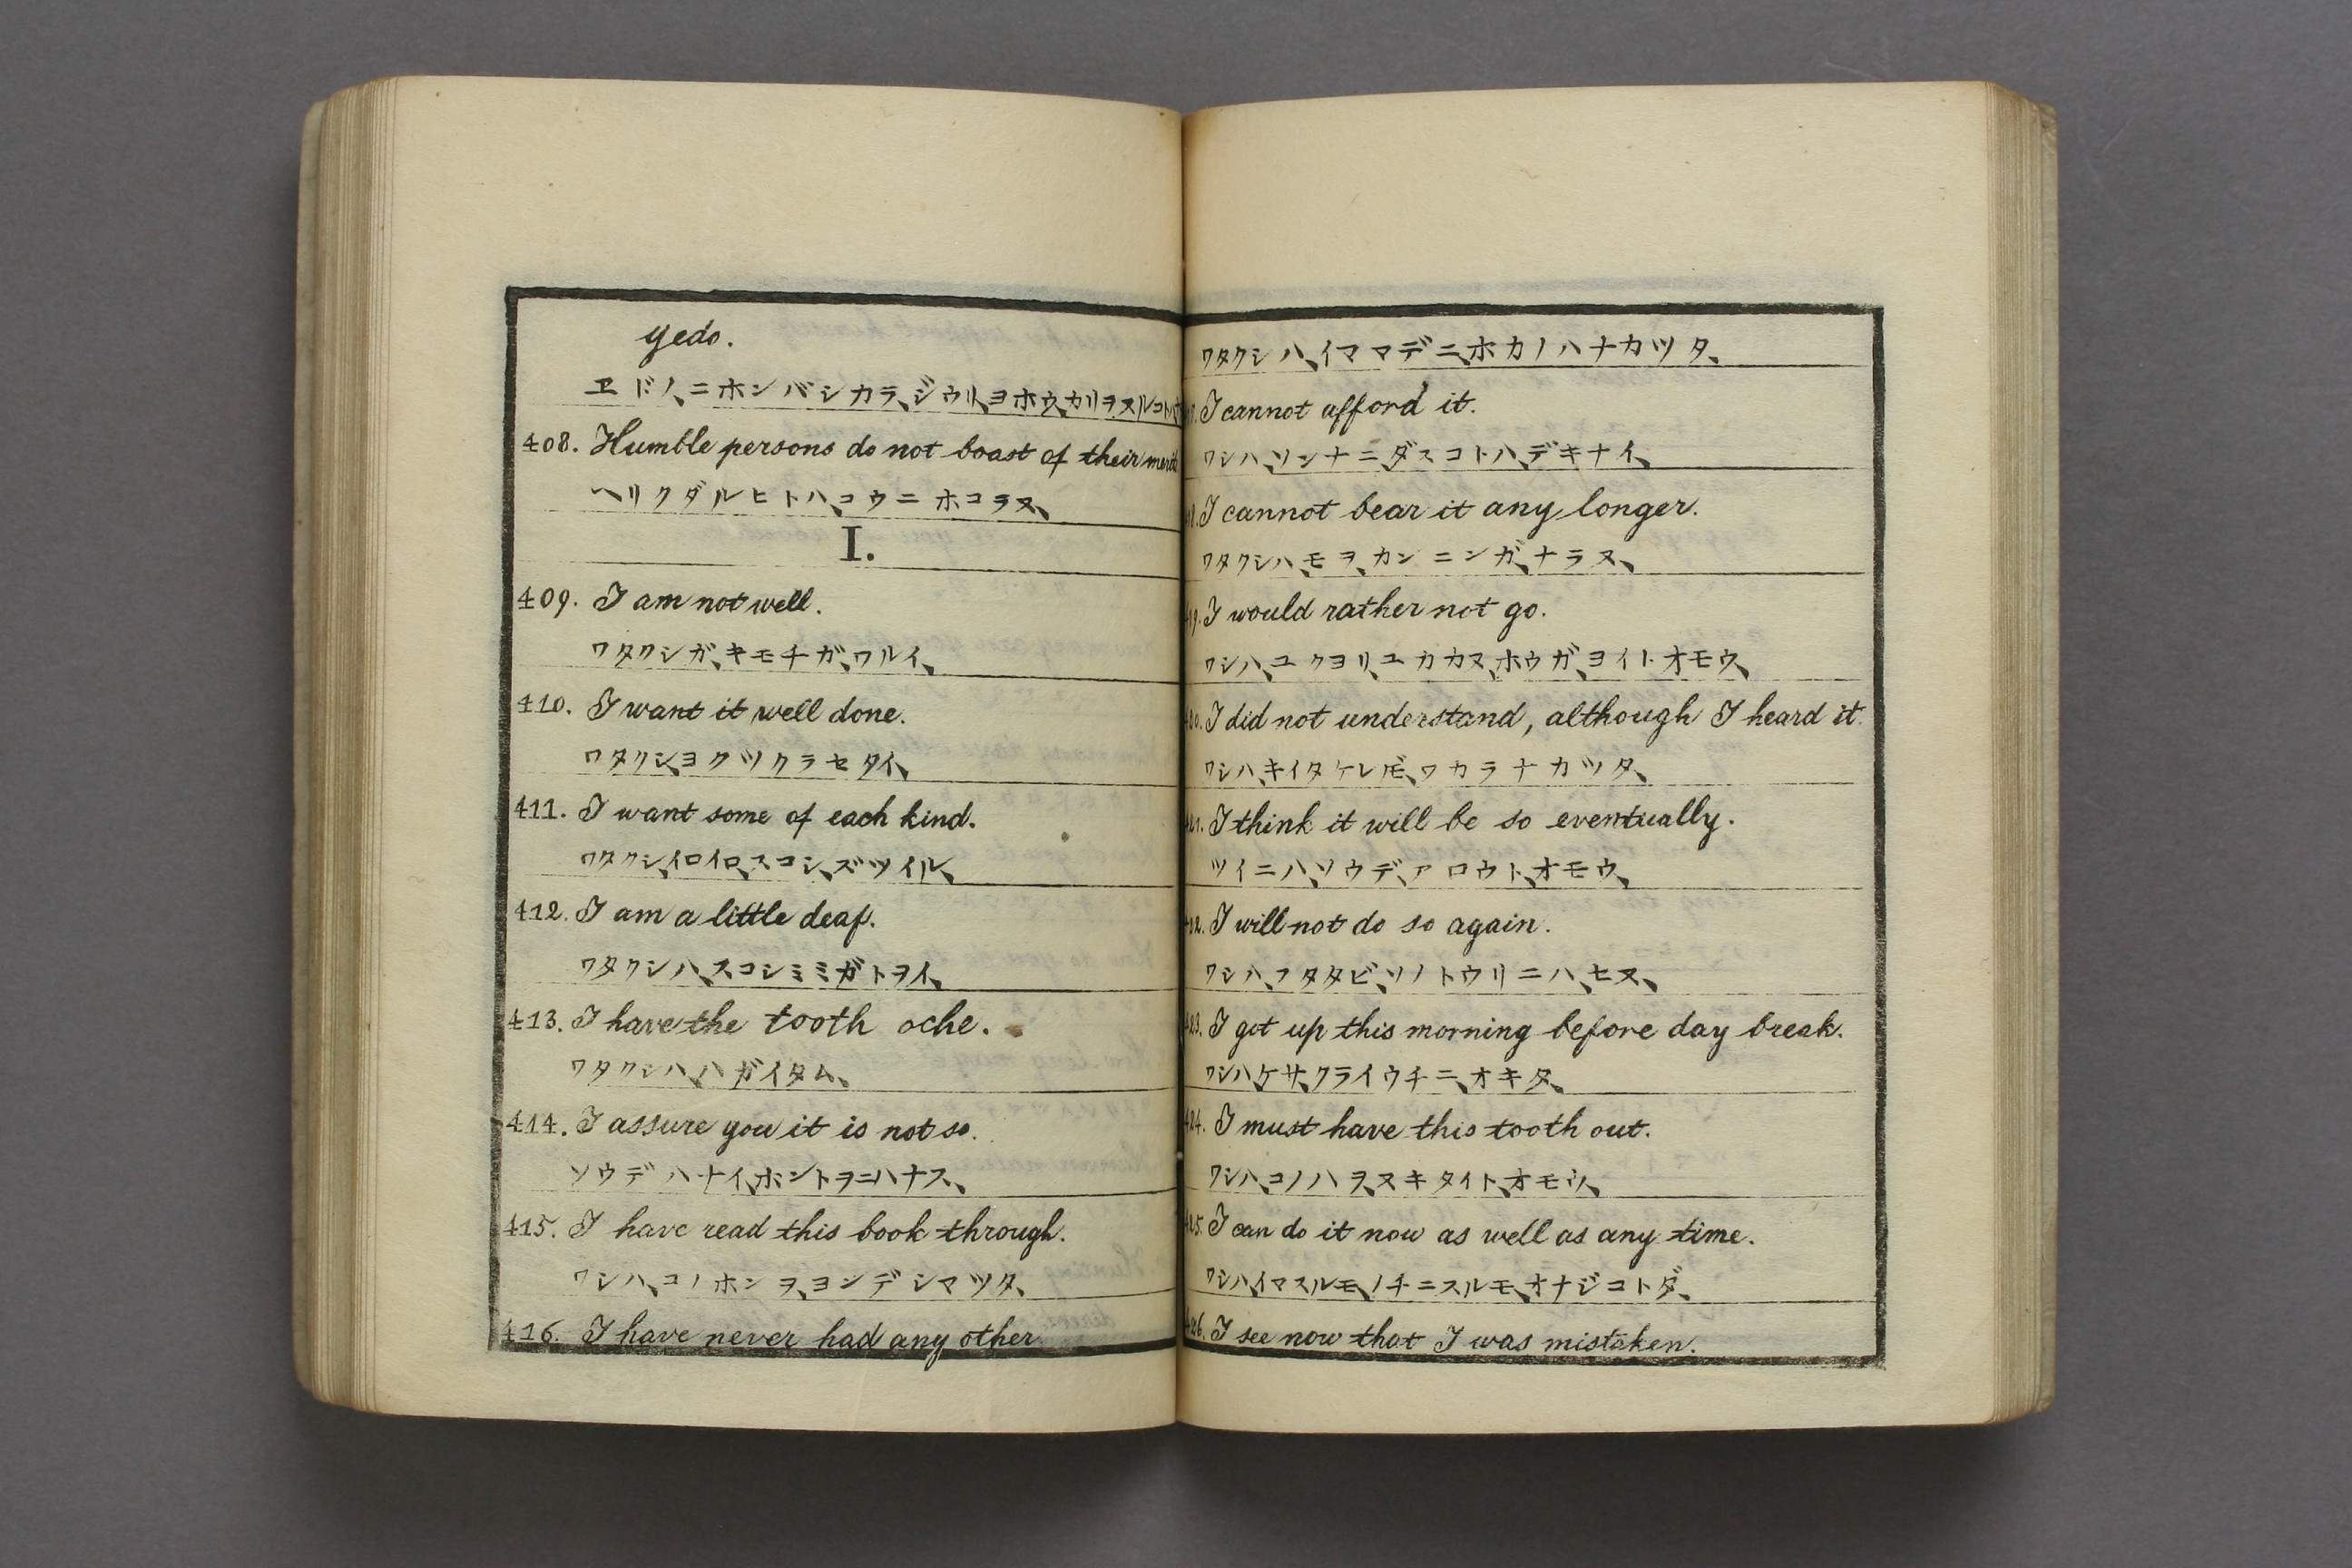 yedo.
ヱドノ、ニホンバシカラ、ジウリ、ヨホウ、カリヲスルコト
408. Humble persons do not boast of their merit
ヘリクダルヒトハ、コウニホコラヌ、
I.
409. I am not well.
ワタクシガ、キモチガ、ワルイ、
410. I want it well done.
ワタクシ、ヨクツクラセタイ、
411. I want some of each kind.
ワタクシ、イロイロ、スコシ、ズツイル、
412. I am a little deaf.
ワタクシハ、スコシミミガトヲイ、
413. I have the tooth oche.
ワタクシハ、ハガイタム、
414. I assure you it is not so.
ソウデハナイ、ホントヲニハナス、
415. I have read this book through.
ワシハ、コノホンヲ、ヨンデシマツタ、
416. I have never had any other
ワタクシハ、イママデニ、ホカノハナカツタ、
I cannot afford it.
ワシハ、ソンナニ、ダスコトハ、デキナイ、
I cannot bear it any longer.
ワタクシハ、モヲ、カンニンガ、ナラヌ、
I would rather not go.
ワシハ、ユクヨリ、ユカカヌ、ホウガ、ヨイトオモウ、
I did not understand, although I heard it.
ワシハ、キイタケレ𪜈、ワカラナカツタ、
I think it will be so eventually.
ツイニハ、ソウデ、アロウト、オモウ、
I will not do so again.
ワシハ、フタタビ、ソノトウリニハ、セヌ、
I got up this morning before day break.
ワシハ、ケサ、クライウチニ、オキタ、
I must have this tooth out.
ワシハ、コノハヲ、ヌキタイト、オモウ、
I can do it now as well as any time.
ワシハ、イマスルモ、ノチニスルモ、オナジコトダ、
I see now that I was mistaken.